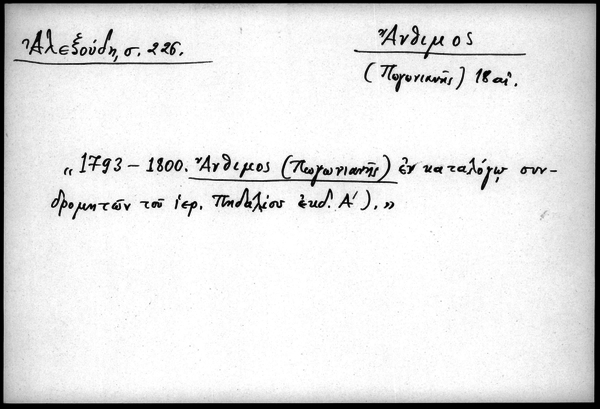 Ἀλεξούδη, σ. 226.
Ἄνθιμος
(Πωγωνιανῆς) 18 αἰ.
„ 1793 – 1800. Ἄνθιμος (Πωγωνιανῆς) ἐν καταλόγῳ συν-
δρομητῶν τοῦ ἱερ. Πηδαλίου ἐκδ. Α΄). »